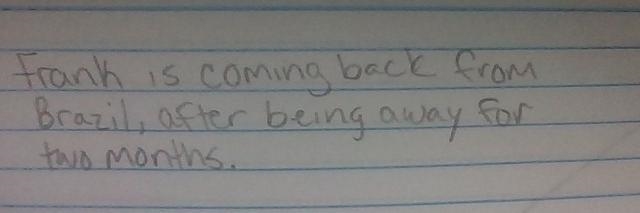 Frank is coming back from
Brazil, after being away for
two months.